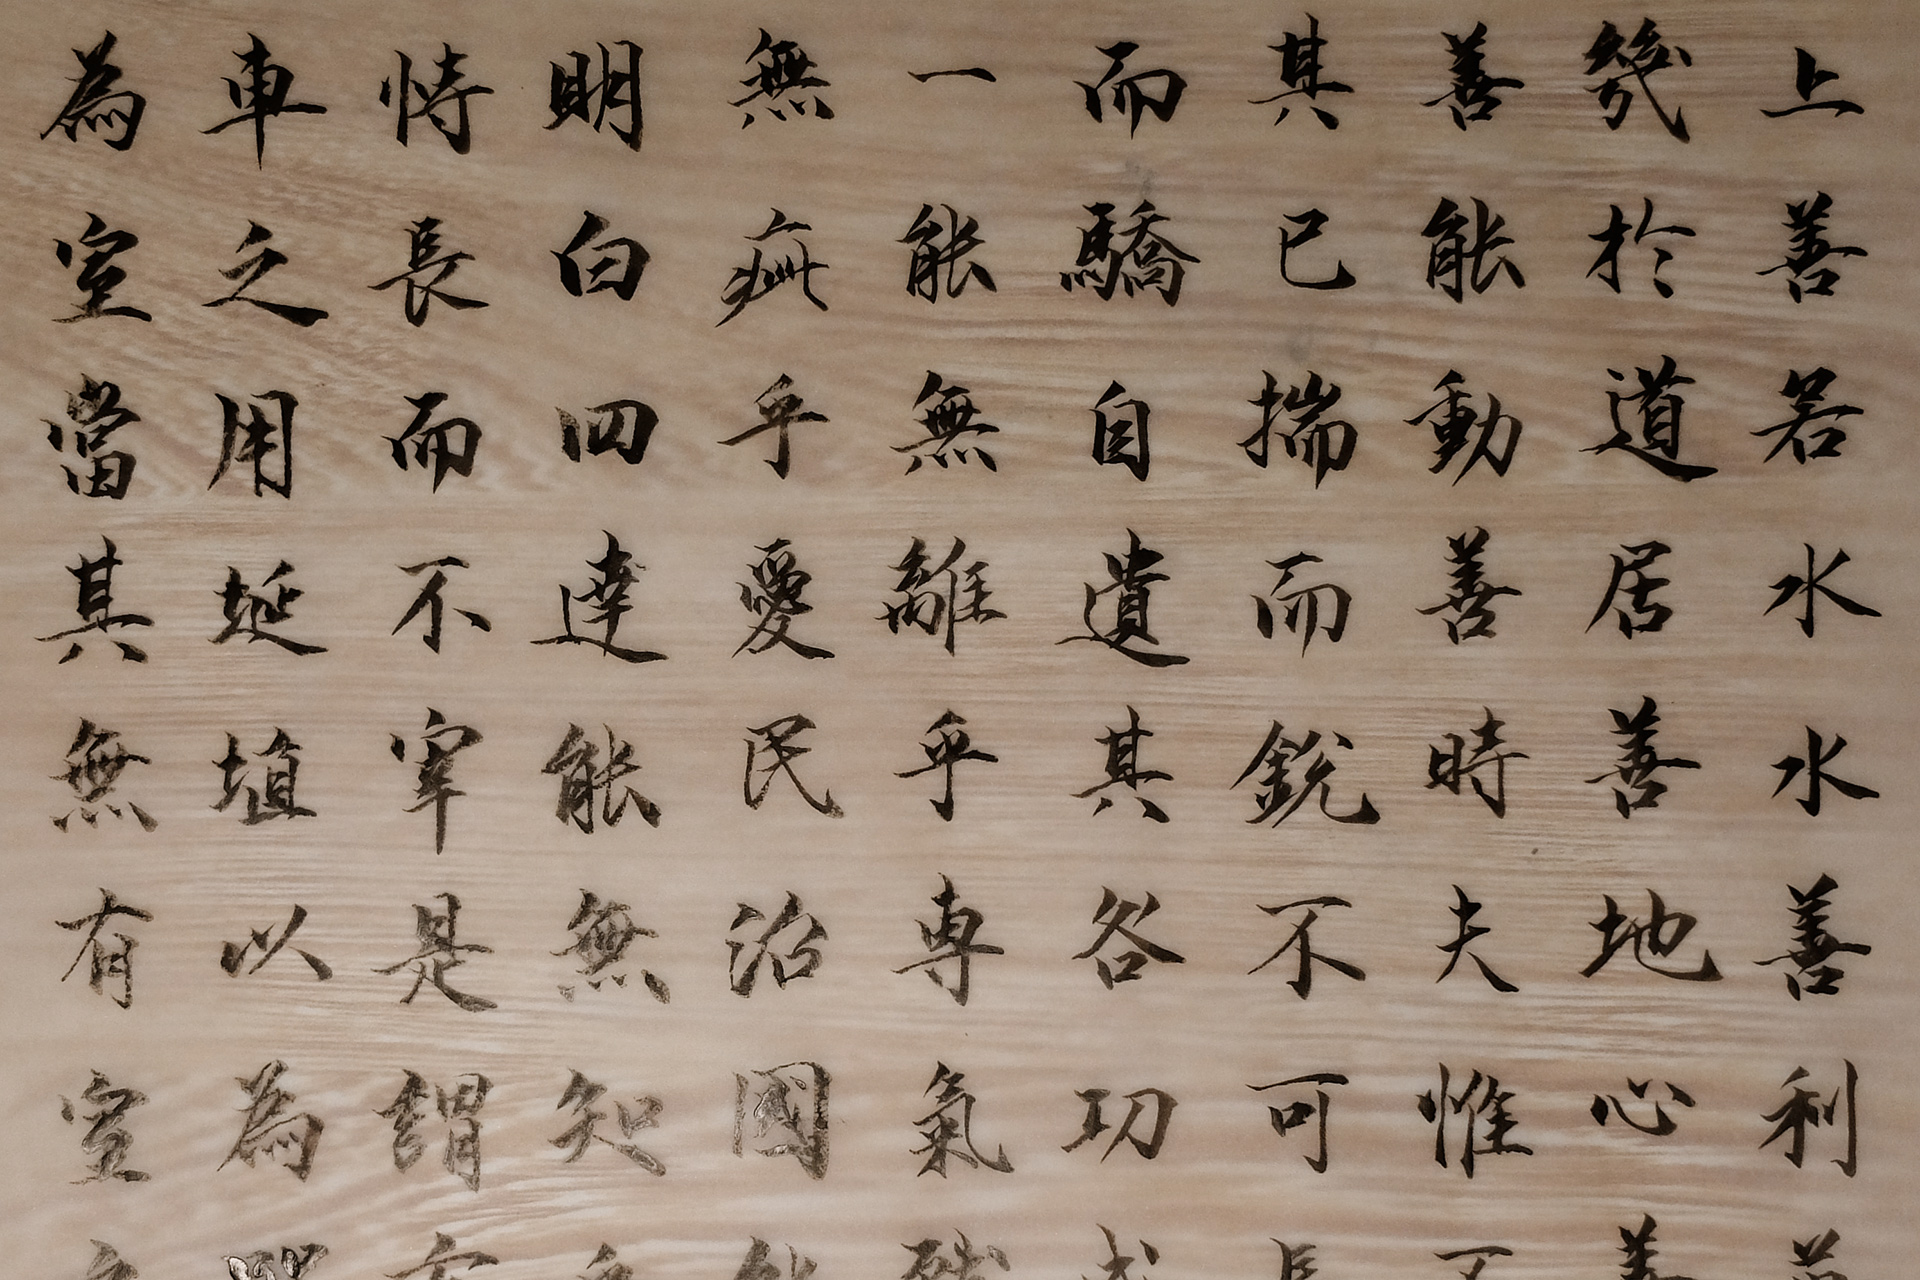 上善若水水善利
幾於道居善地心善
善能動善時夫惟不
其已揣而銳不可長
而驕自遺其咎功成
一能無離乎專氣致
無疵乎愛民治國能
明白四達能無知乎
恃長而不宰是謂玄
車之用埏埴以為器
為室當其無有室之